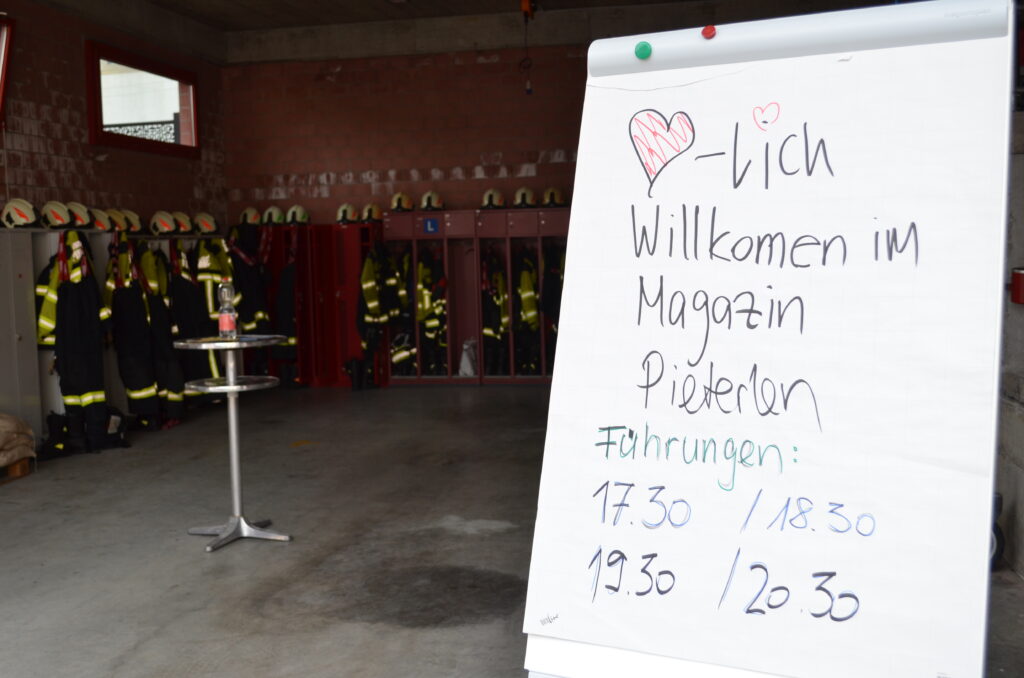 -lich
Willkomen im
Magazin
Pieterlen
Führungen:
17.30 / 18.30
19.30 / 20.30
L